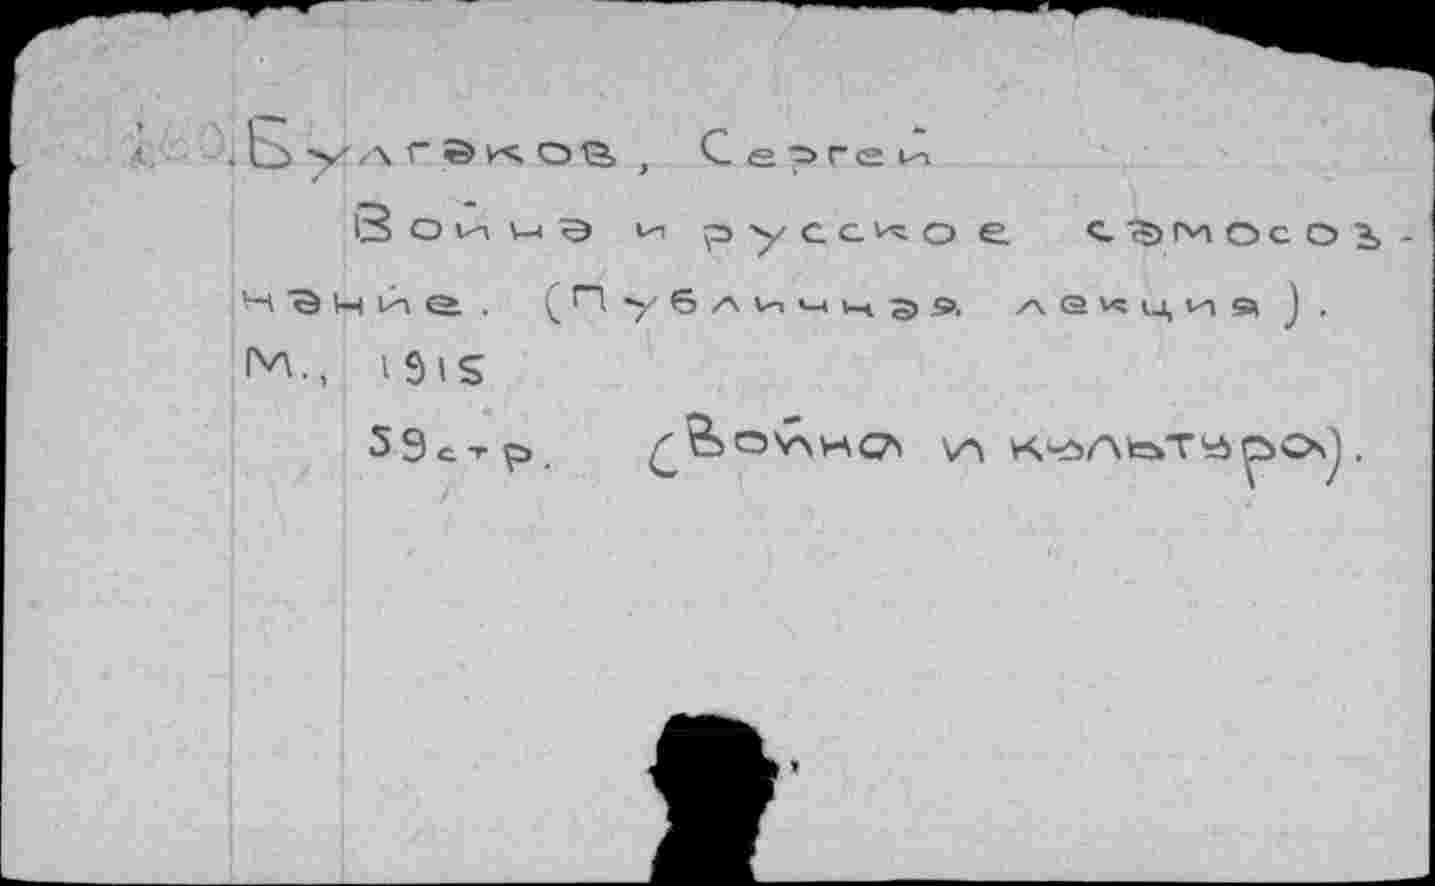 Булгаков, Сергей
Война и русское самосоз-
нание. (Публичная лекция).
М., 1915
59 стр. (Война и культура).